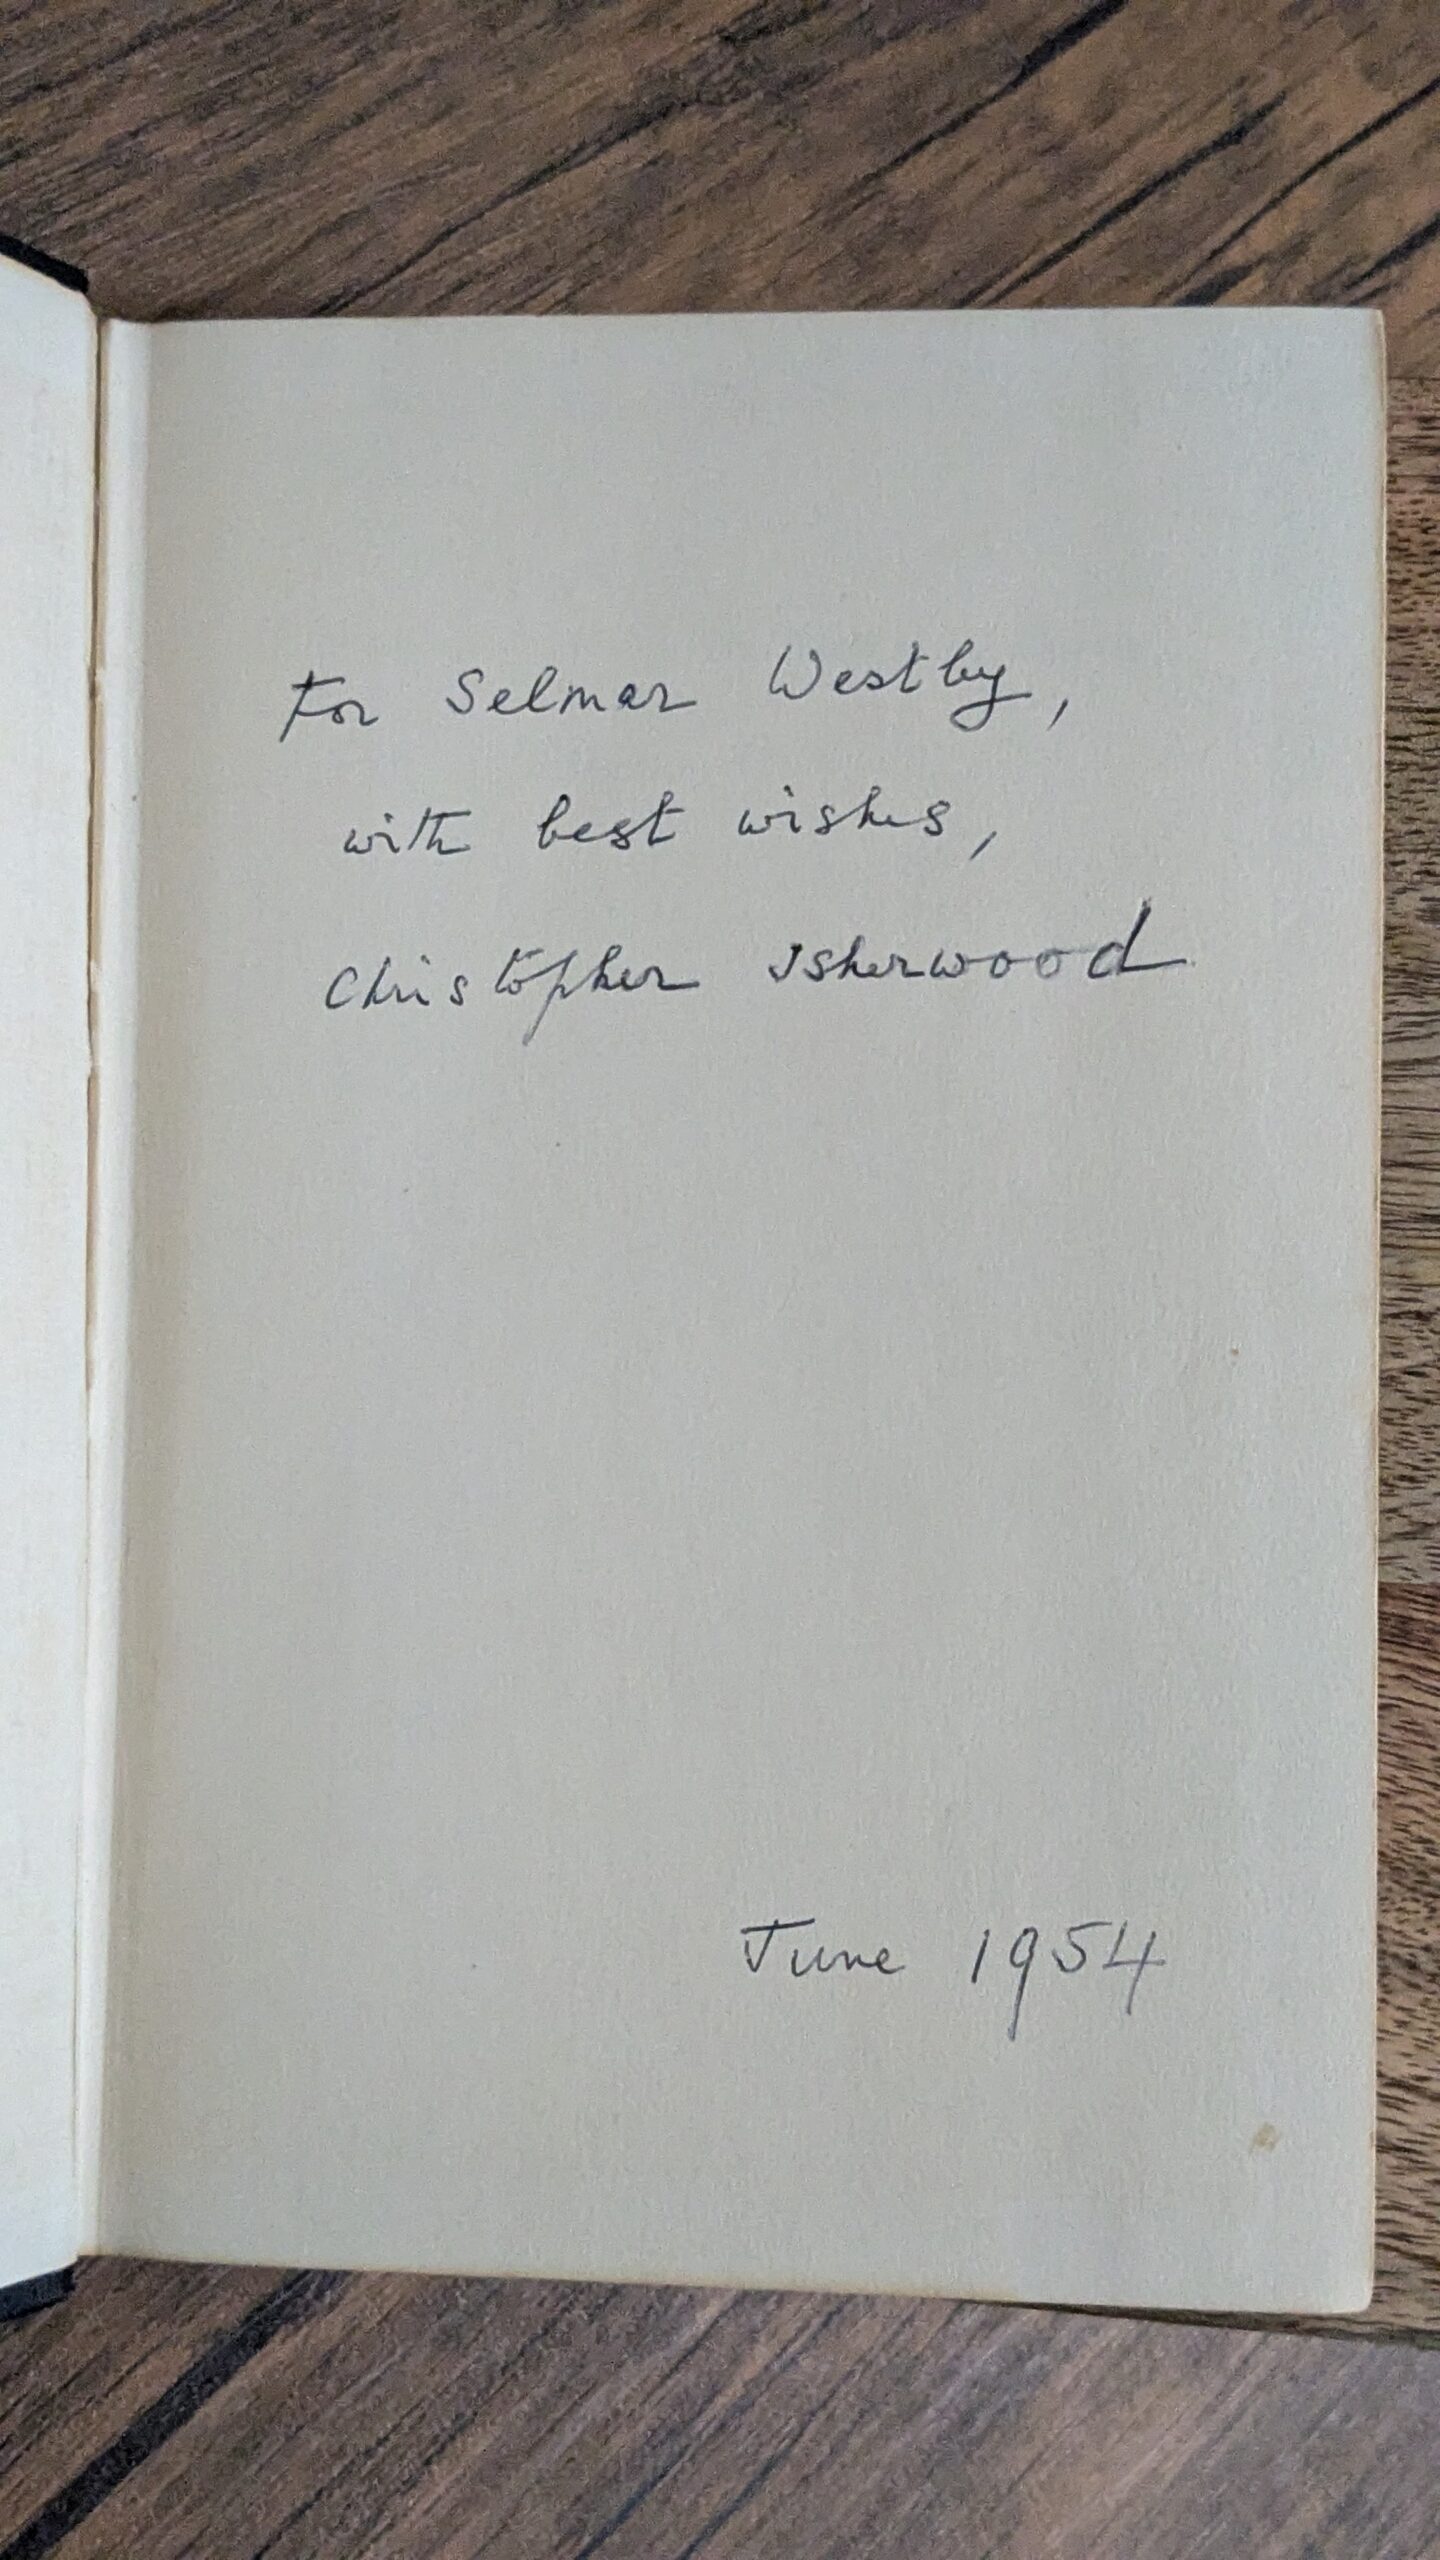 For Selmar Westby,
with best wishes,
Christopher Isherwood
June 1954